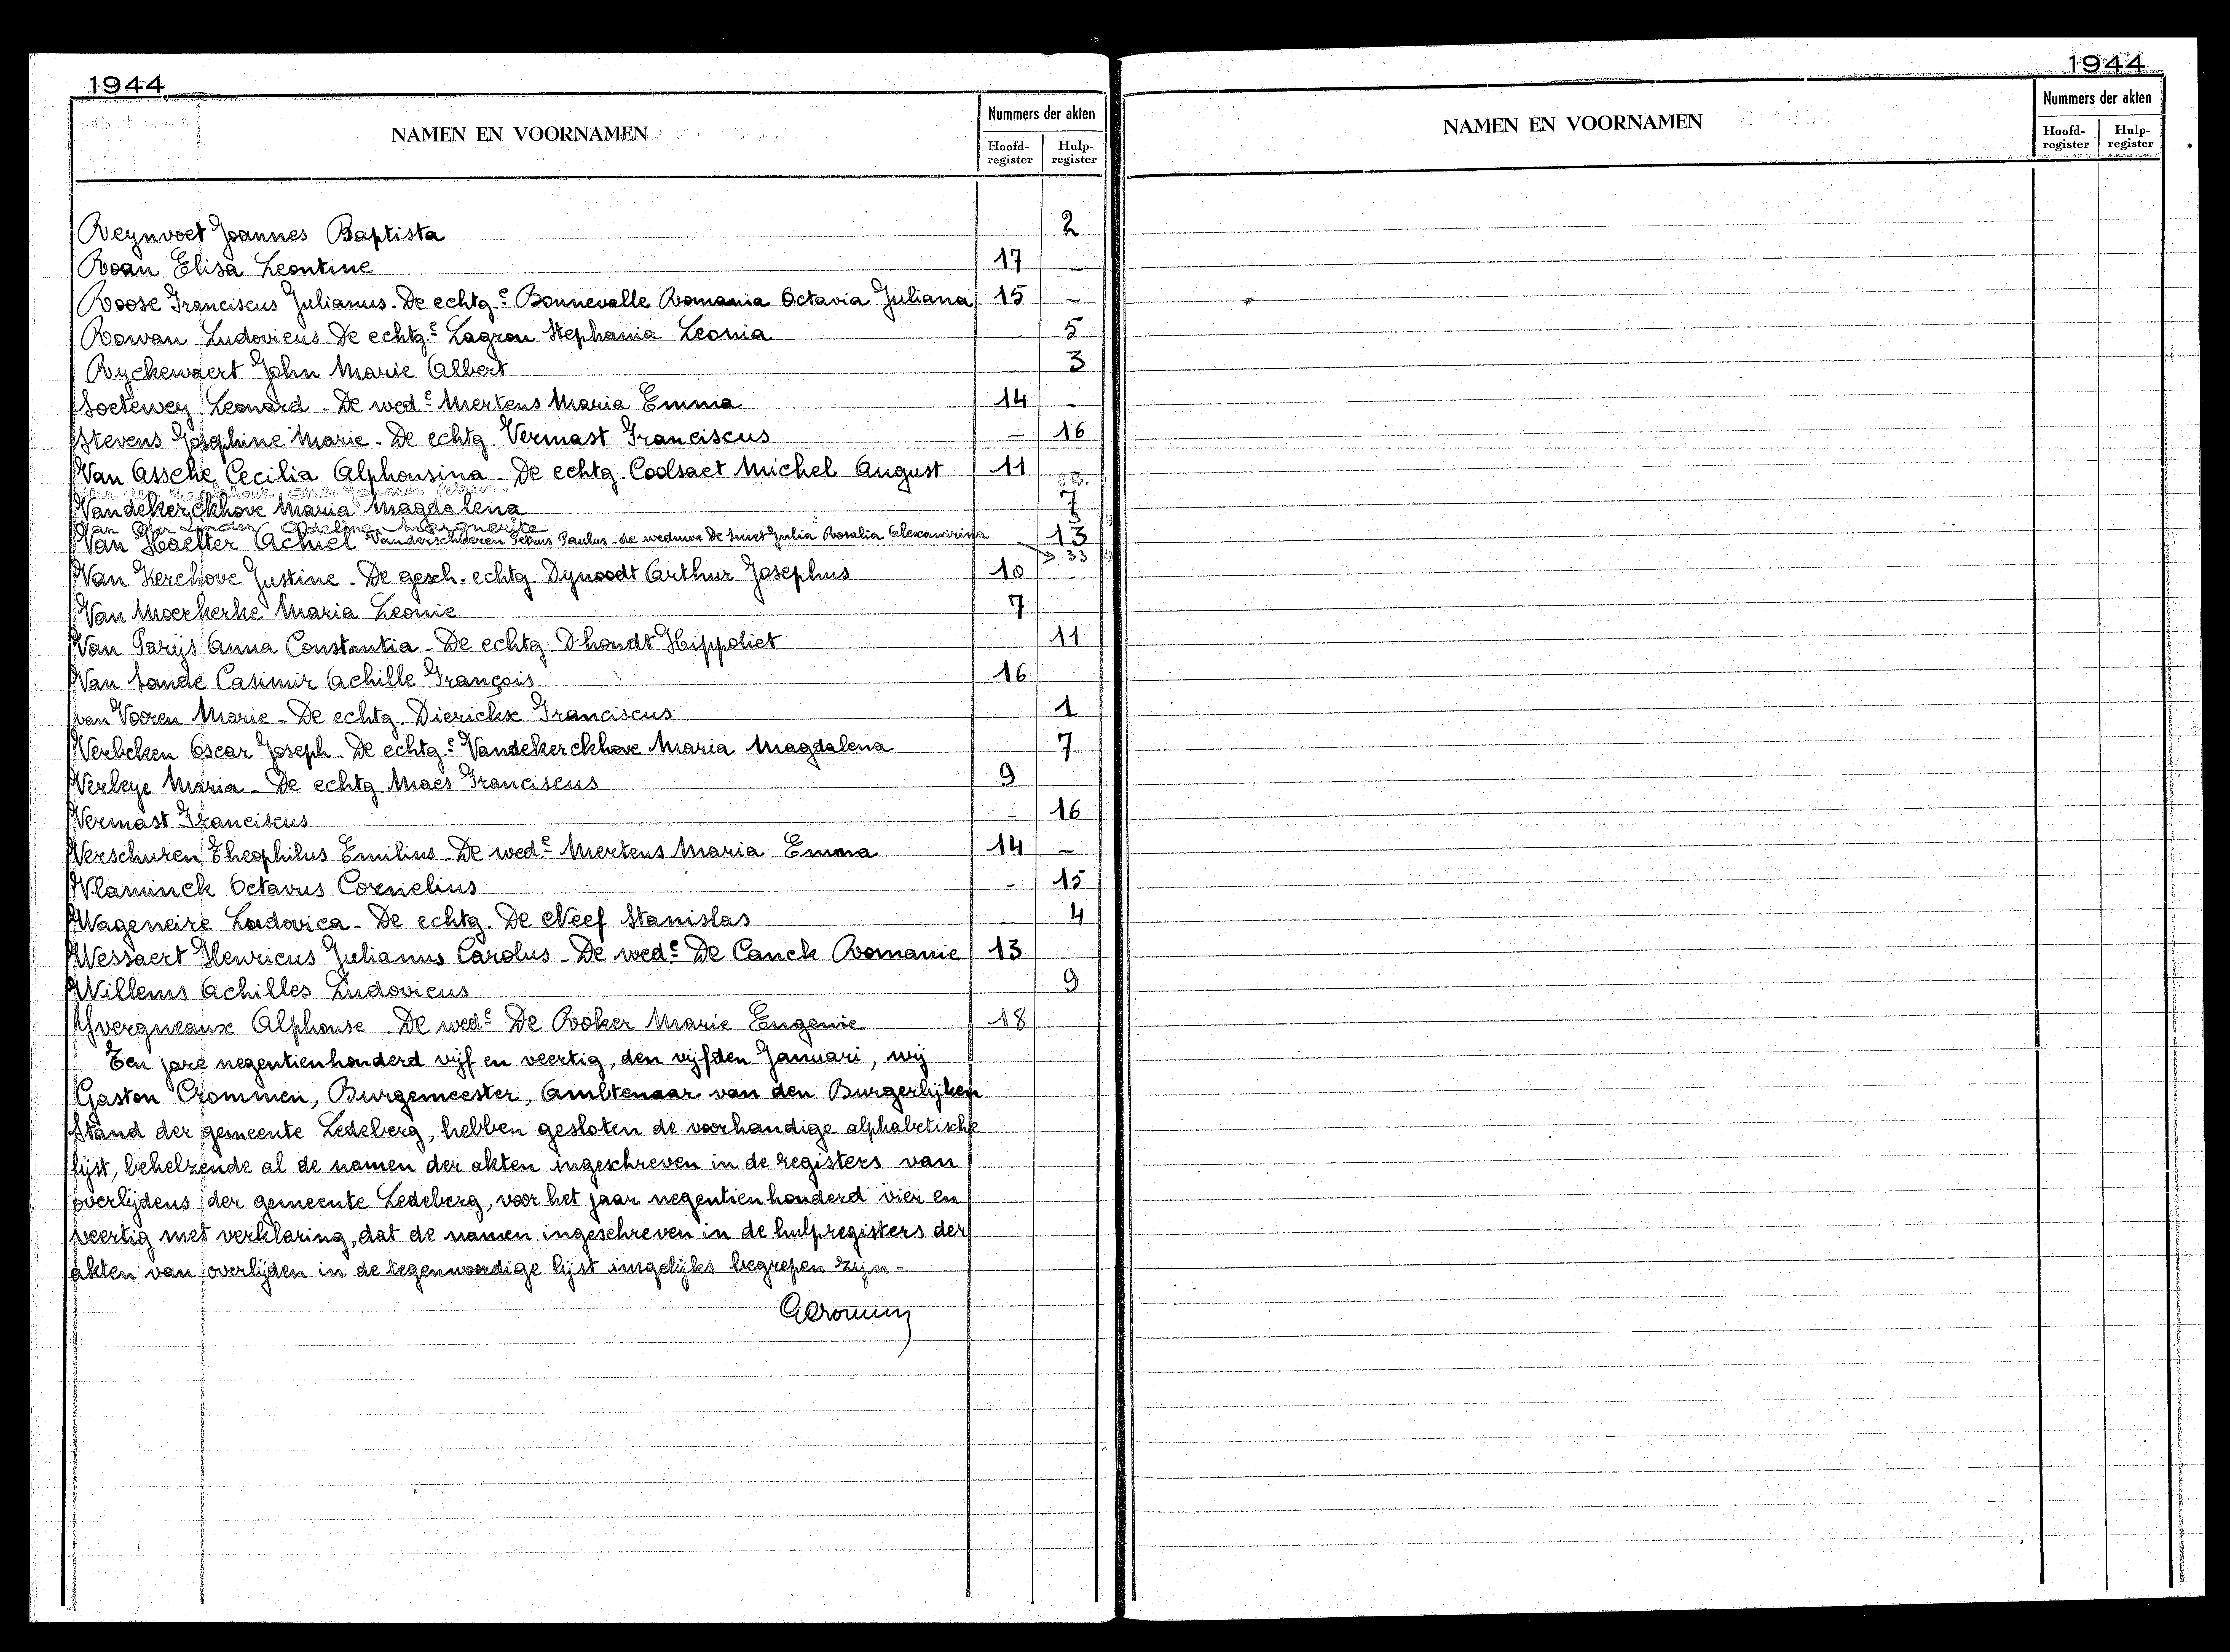 1944
1944
NAMEN EN VOORNAMEN
Nummers der akten
Hoofd-register Hulp-register
NAMEN EN VOORNAMEN
Nummers der akten
Hoofd-register Hulp-register
Reynvoet Joannes Baptista 2
Roan Elisa Leontine 17 -
Roose Franciscus Julianus - De echtg.e Bonnevalle Romania Octavia Juliana 15 -
Rowan Ludovicus - De echtg.e Lagrou Stephania Leonia - 5
Ryckewaert John Marie Albert - 3
Soetewey Leonard - De wed.e Mertens Maria Emma 14 -
Stevens Josephine Marie - De echtg. Vermast Franciscus - 16
Van Assche Cecilia Alphonsina - De echtg. Coolsaet Michel August 11
Vandekerckhove Maria Magdalena 7
Van der Linden Adeline Marguerite
Van Haelter Achiel - 13
Vanderschueren Petrus Paulus - de weduwe De Smet Julia Rosalia Alexandrina → 33
Van Kerchove Justine - De gesch. echtg. Dynoodt Arthur Josephus 10
Van Moerkerke Maria Leonie 7
Van Parijs Anna Constantia - De echtg. D'hondt Hippoliet 11
Van Sande Casimir Achille François 16
van Vooren Marie - De echtg. Dierickx Franciscus 1
Verbeken Oscar Joseph - De echtg.e Vandekerckhove Maria Magdalena 7
Verleye Maria - De echtg. Maes Franciscus 9
Vermast Franciscus - 16
Verschuren Theophilus Emilius - De wed.e Mertens Maria Emma 14 -
Vlaminck Octavus Cornelius - 15
Wageneire Ludovica - De echtg. De Neef Stanislas - 4
Wessaert Henricus Julianus Carolus - De wed.e De Canck Romanie 13
Willems Achilles Ludovicus 9
Yvergneaux Alphonse - De wed.e De Roker Marie Eugenie 18
Ten jare negentienhonderd vijf en veertig, den vijfden Januari, wij
Gaston Crommen, Burgemeester, Ambtenaar van den Burgerlijken
Stand der gemeente Ledeberg, hebben gesloten de voorhandige alphabetische
lijst, behelzende al de namen der akten ingeschreven in de registers van
overlijdens der gemeente Ledeberg, voor het jaar negentienhonderd vier en
veertig met verklaring, dat de namen ingeschreven in de hulpregisters der
akten van overlijden in de tegenwoordige lijst insgelijks begrepen zijn -
GCrommen